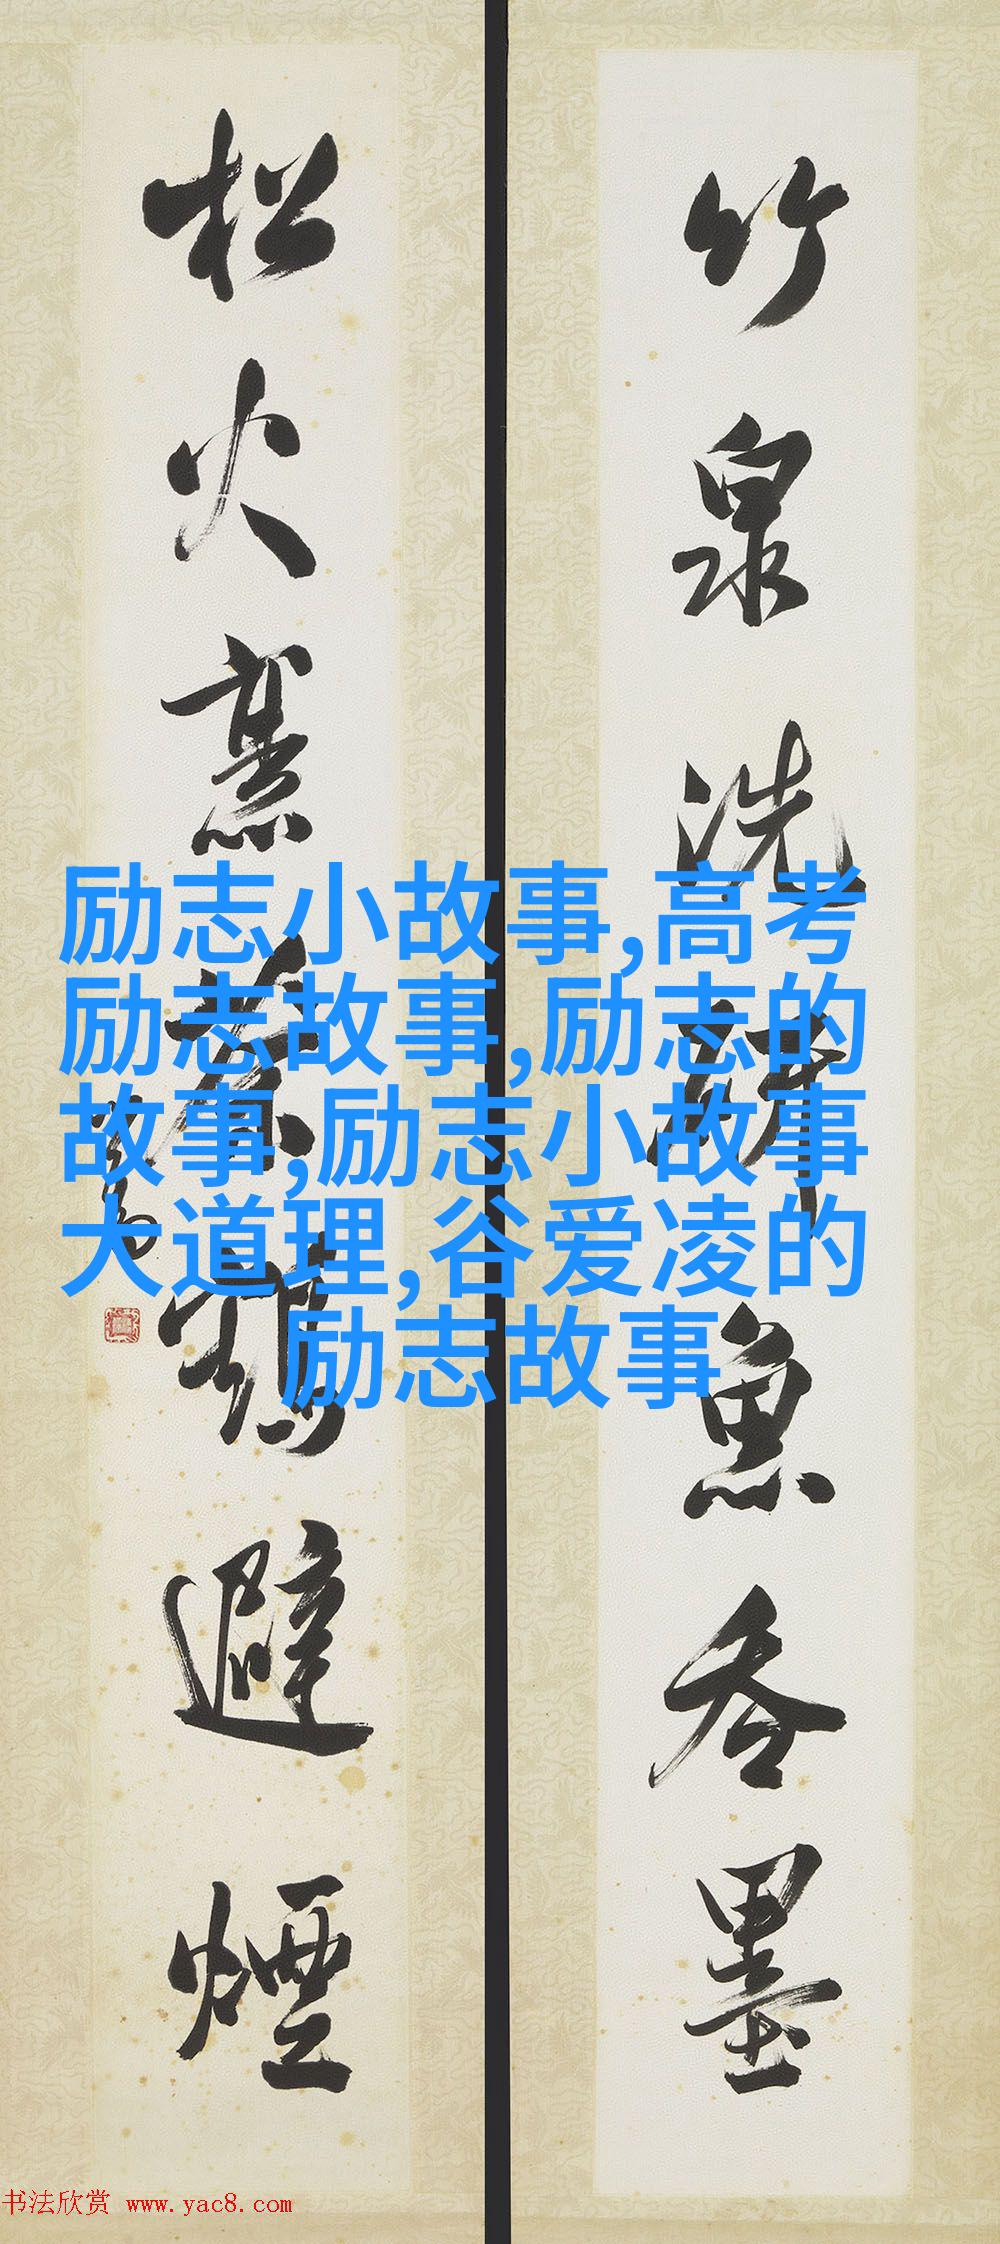 竹泉洗研魚吞墨
松火烹茶鶴避煙
励志小故事,高考
励志故事,励志的
故事,励志小故事
大道理,谷爱凌的
励志故事
书法欣赏 www.yac8.com